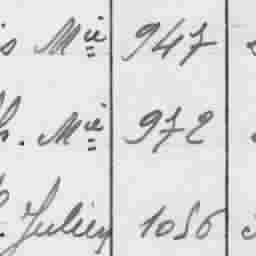 s Mie 947
h. Mie 972
Julien 1056